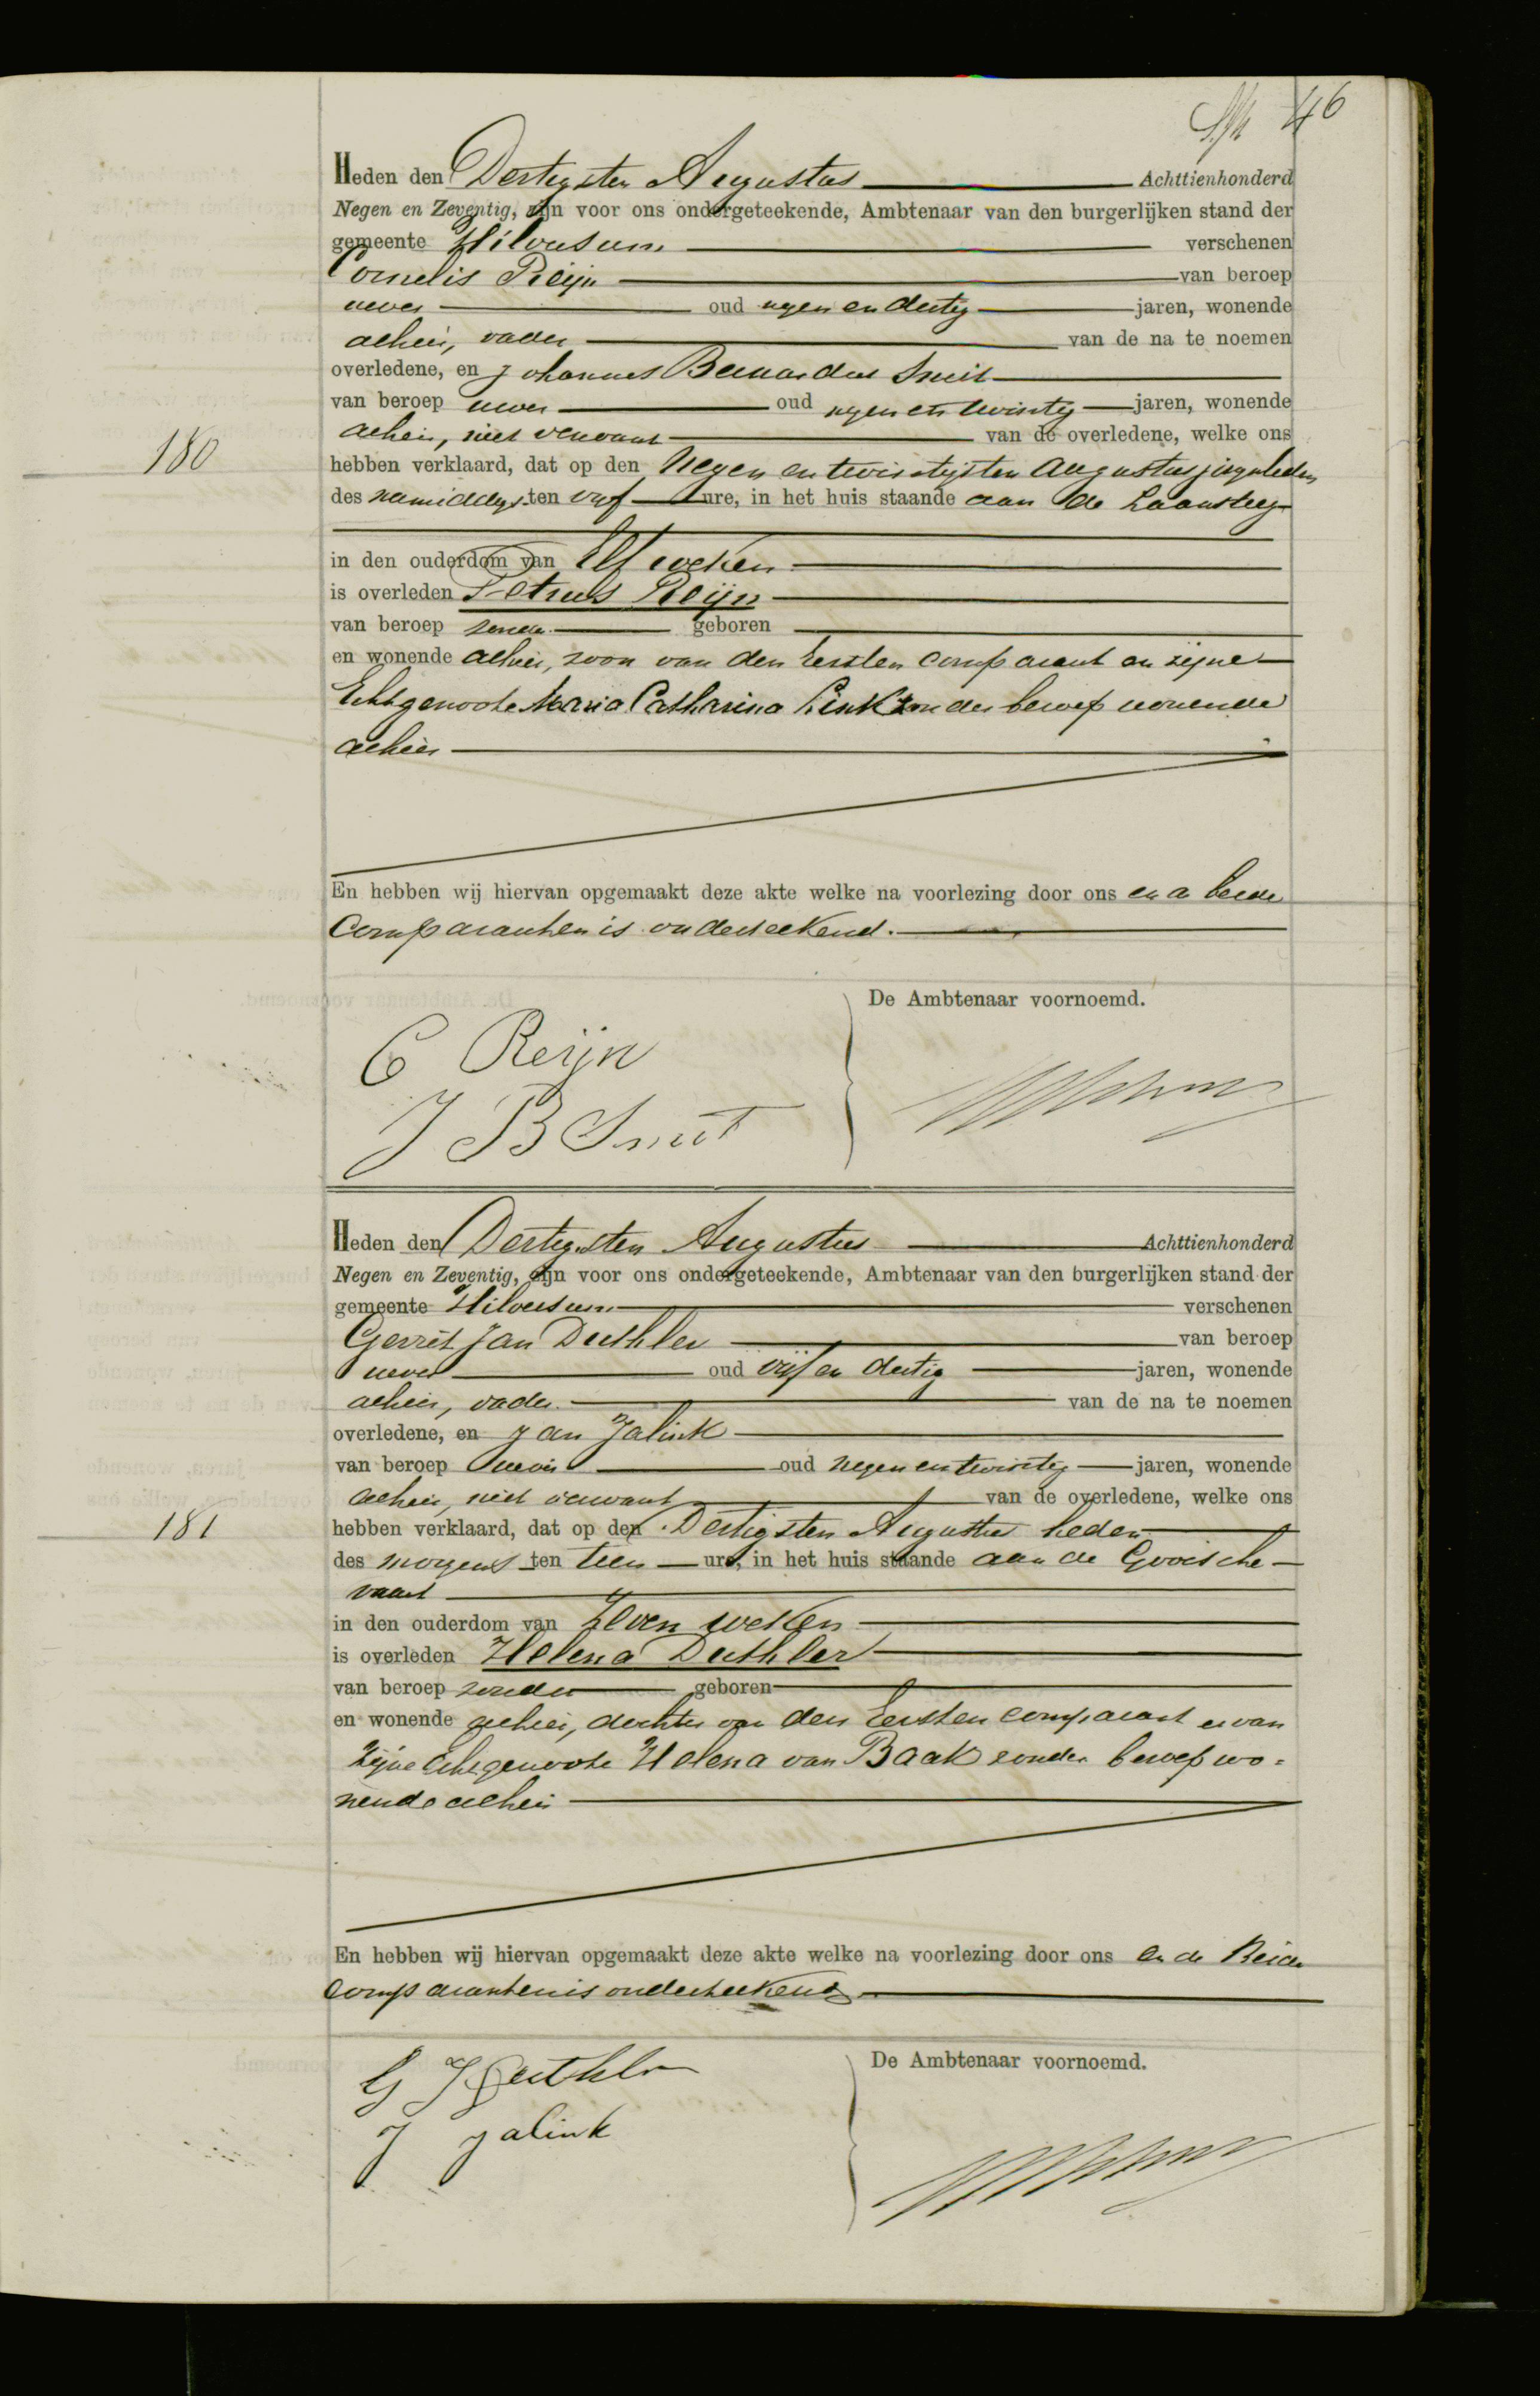 46
Heden den Dertigsten Augustus Achttienhonderd
Negen en Zeventig, zijn voor ons ondergeteekende, Ambtenaar van den burgerlijken stand der
gemeente Hilversum verschenen
Cornelis Reijn van beroep
wever oud negen en dertig jaren, wonende
alhier, vader van de na te noemen
overledene, en Johannes Bernardus Smit
van beroep wever oud negen en twintig jaren, wonende
alhier, niet verwant van de overledene, welke ons
180
hebben verklaard, dat op den Negen en twintigsten Augustus jongstleden
des namiddags ten vijf ure, in het huis staande aan de Laansteeg
in den ouderdom van Elf weken
is overleden Petrus Reijn
van beroep zonder geboren
en wonende alhier, zoon van den Eersten comparant en zijne
Echtgenoote Maria Catharina Link zonder beroep wonende
alhier
En hebben wij hiervan opgemaakt deze akte welke na voorlezing door ons en de beide
Comparanten is onderteekend.
De Ambtenaar voornoemd.
C Reijn
J B Smit
Heden den Dertigsten Augustus Achttienhonderd
Negen en Zeventig, zijn voor ons ondergeteekende, Ambtenaar van den burgerlijken stand der
gemeente Hilversum verschenen
Gerrit Jan Duthler van beroep
wever oud vijf en dertig jaren, wonende
alhier, vader van de na te noemen
overledene, en Jan Jalink
van beroep wever oud negen en twintig jaren, wonende
alhier, niet verwant van de overledene, welke ons
181
hebben verklaard, dat op den Dertigsten Augustus heden
des morgens ten tien ure, in het huis staande aan de Gooische
vaart
in den ouderdom van Zeven weken
is overleden Helena Duthler
van beroep zonder geboren
en wonende alhier, dochter van den Eersten comparant en van
zijne Echtgenoote Helena van Baak zonder beroep wo=
nende alhier
En hebben wij hiervan opgemaakt deze akte welke na voorlezing door ons en de Beide
comparanten is onderteekend
De Ambtenaar voornoemd.
G J Duthler
J Jalink